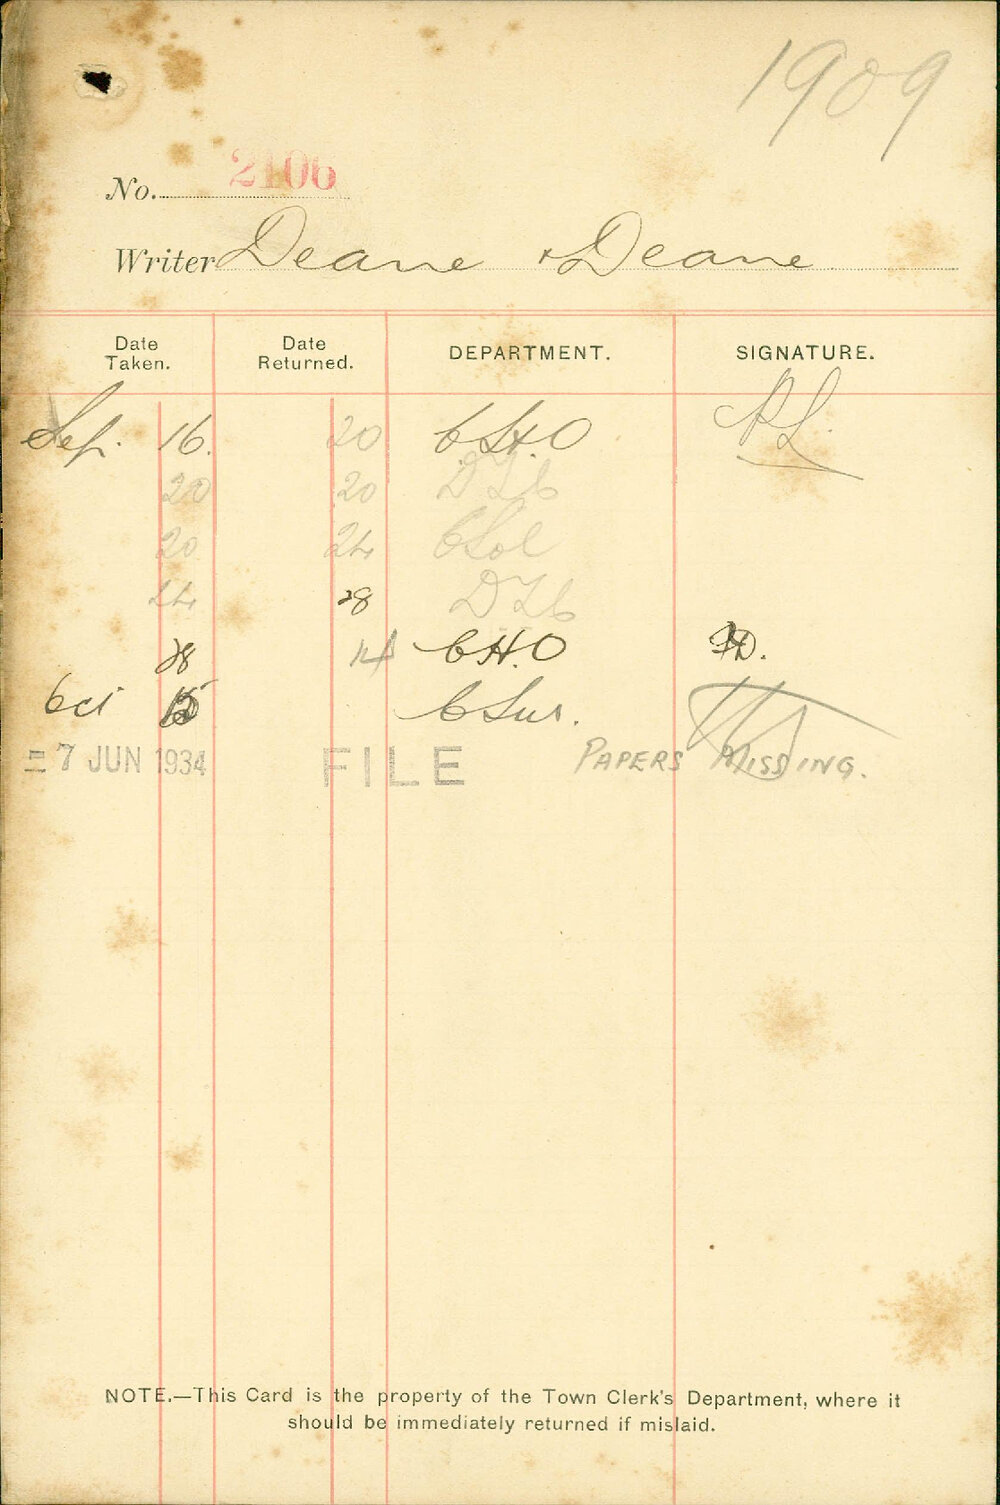 1909
No. 2106
Writer Deane & Deane
Date Taken. Date Returned. DEPARTMENT. SIGNATURE.
Sep. 16. 20 C.H.O
20 20 DTC
20 24 CSol
24 28 DTC
28 14 CHO
Oct 15 CSur.
7 JUN 1934 FILE PAPERS MISSING.
NOTE.—This Card is the property of the Town Clerk's Department, where it
should be immediately returned if mislaid.